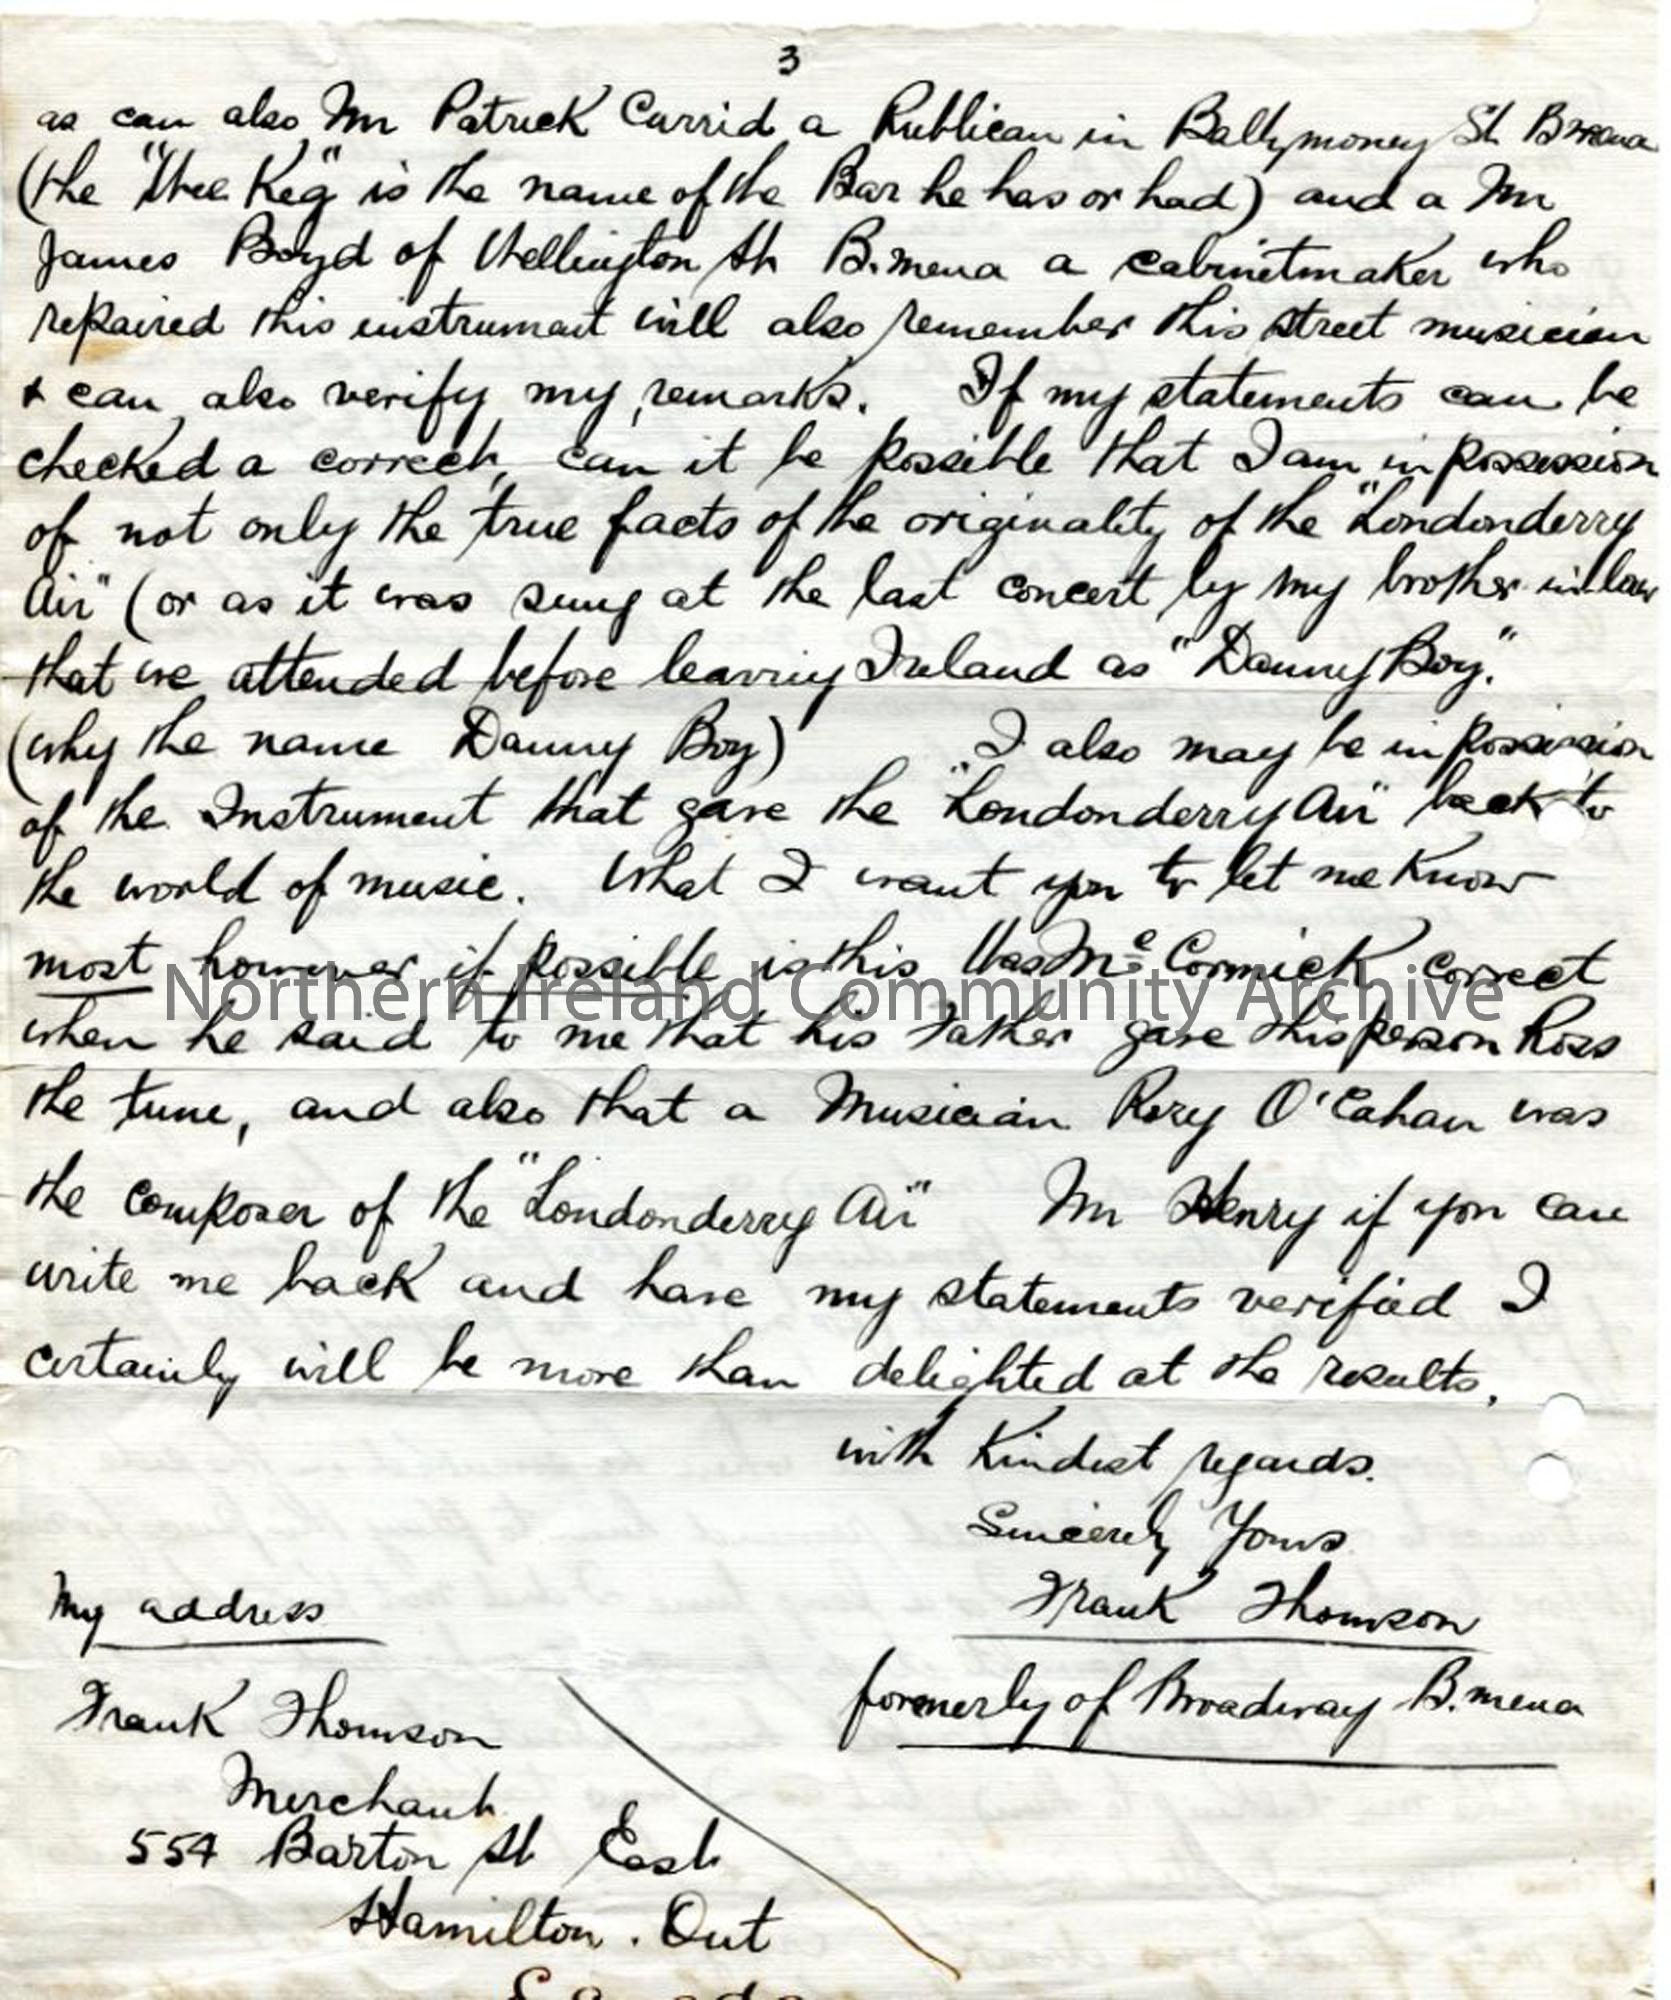 3
as can also Mr Patrick Currid a Publican in Ballymoney St B.mena
(the "Wee Keg" is the name of the Bar he has or had) and a Mr
James Boyd of Wellington St B.mena a cabinetmaker who
repaired this instrument will also remember this street musician
& can also verify my remarks. If my statements can be
checked a correct, can it be possible that I am in possession
of not only the true facts of the originality of the "Londonderry
Air" (or as it was sung at the last concert by my brother in law
that we attended before leaving Ireland as "Danny Boy."
(why the name Danny Boy) I also may be in possession
of the Instrument that gave the "Londonderry Air" back to
the world of music. What I want you to let me know
most however if possible is this Was McCormick correct
Northern Ireland Community Archive
when he said to me that his Father gave this person Ross
the tune, and also that a Musician Rory O'Cahan was
the composer of the "Londonderry Air" Mr Henry if you can
write me back and have my statements verified I
certainly will be more than delighted at the results.
with Kindest regards.
Sincerely Yours
Frank Thomson
formerly of Broadway B.mena
My address
Frank Thomson
Merchant
554 Barton St East
Hamilton. Ont
Canada